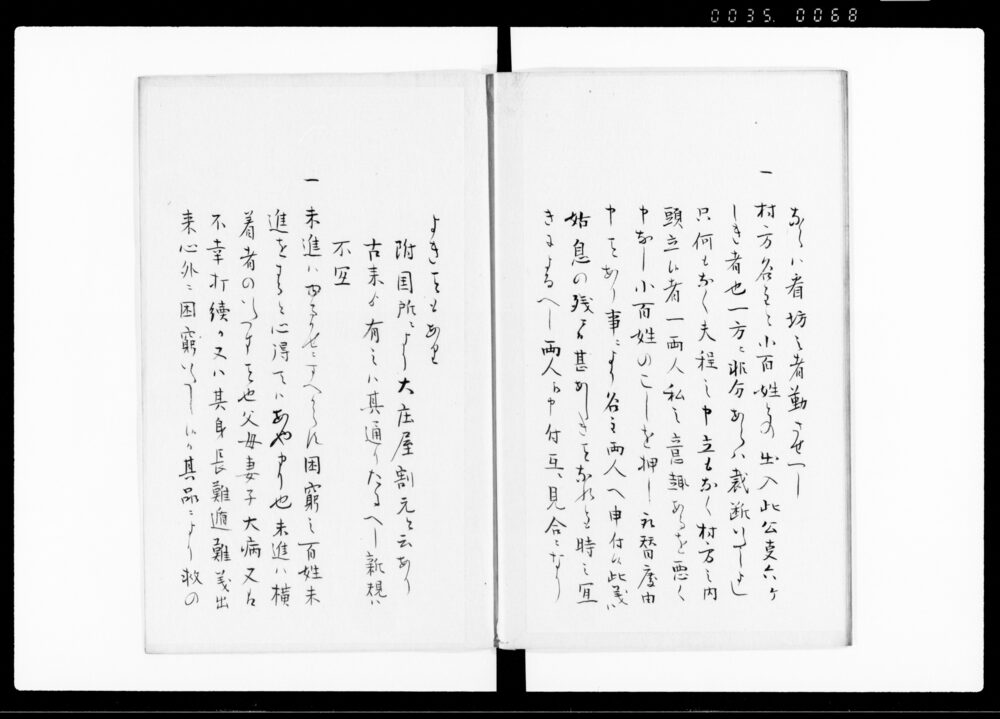 0035. 0068
ならハ看坊之者勤させへし
一
村方名主と小百姓との出入此公事六ケ
しき者也一方ニ非分あらハ裁断いたしよし
只何もなく夫程之申立もなく村方之内
頭立候者一両人私之意趣あるを悪く
申なし小百姓のこしを押し名主替度由
申事あり事により名主両人へ申付候此義ハ
姑息の残る甚あしき事なれとも時之宜
きによるへし両人ニ申付互ニ見合ニなり
よき事もあり
附国所により大庄屋割元と云あり
古来より有之ハ其通りたるへし新規ハ
不宜
一
未進ハ
すへからす困窮之百姓未
進をすると心得てハあやまり也未進ハ横
着者のいたす事也父母妻子大病又ハ
不幸打続か又ハ其身長難遁難義出
来心外ニ困窮いたし候ハヽ其品により救の